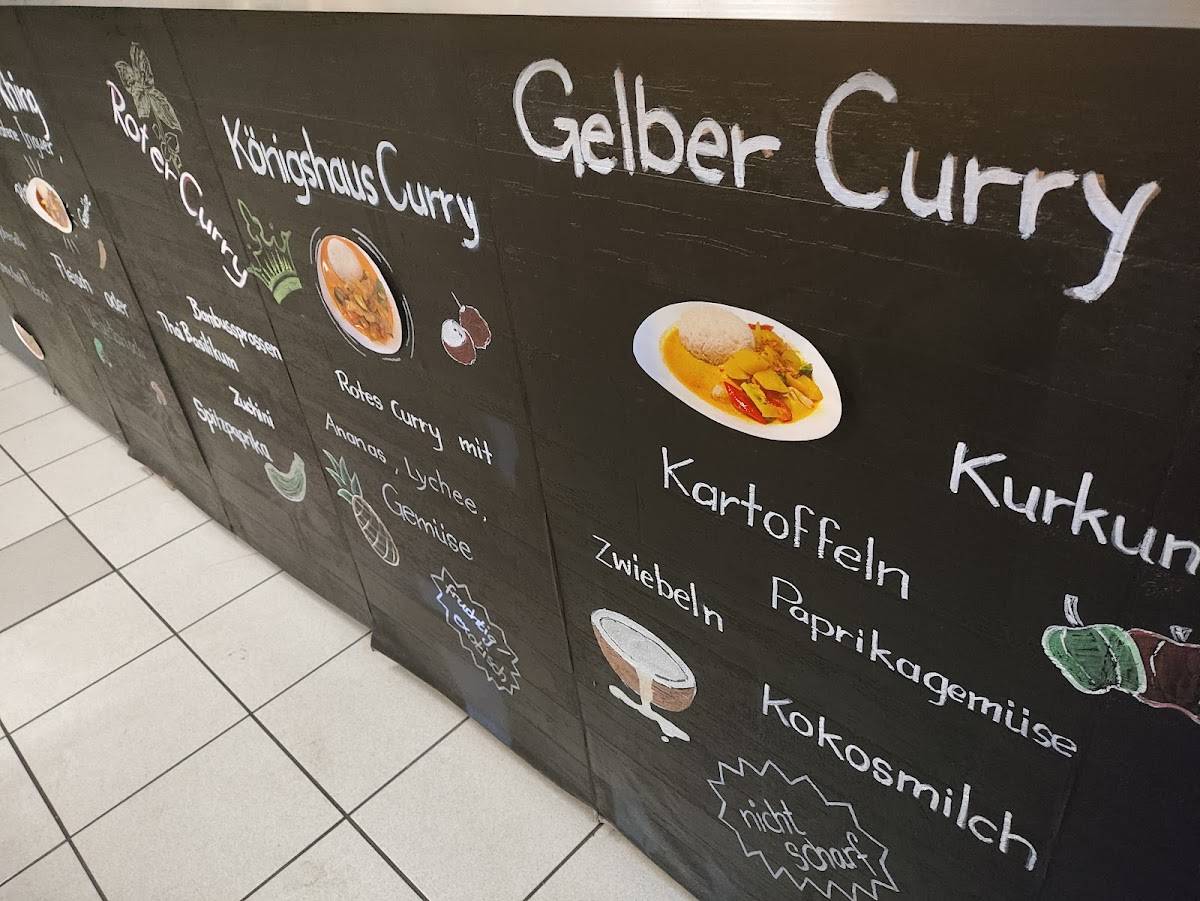 Khing
Ingwer,
Fleisch oder
Roter Curry
Banbussprossen
Thai Basilikum
Zuchini
Spitzpaprika
Königshaus Curry
Rotes Curry mit
Ananas, Lychee,
Gemüse
fruchtig
exotisch
Gelber Curry
Kartoffeln
Kurkum
Zwiebeln
Paprikagemüse
Kokosmilch
nicht
scharf